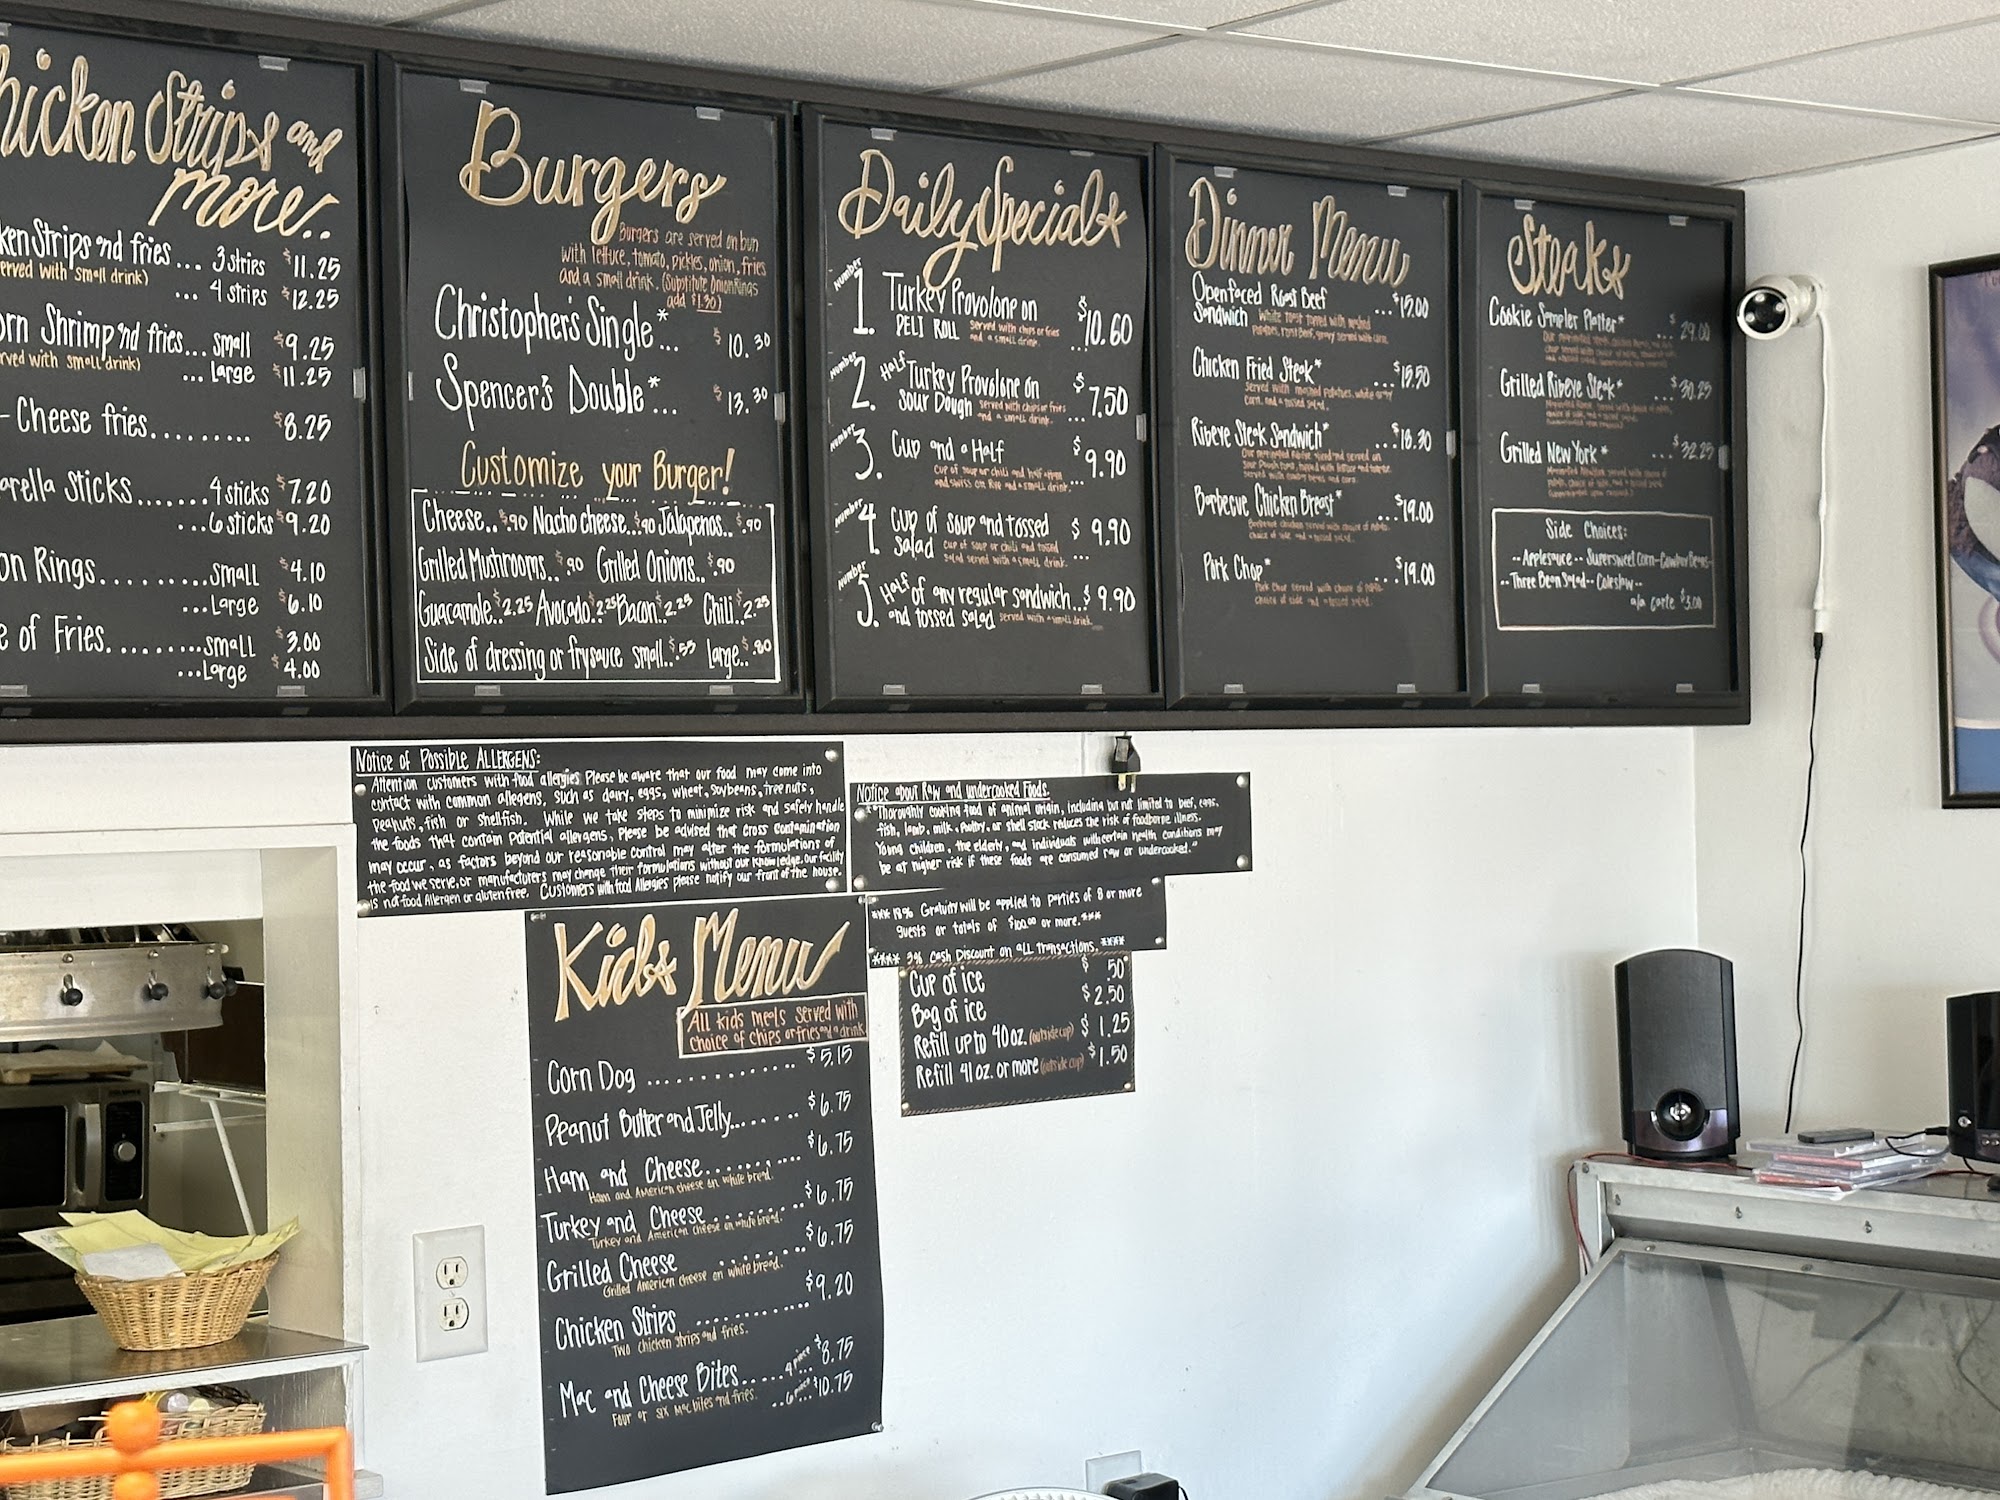 hicken Strips and
more..
ken Strips and fries... 3 strips $11.25
erved with small drink)
... 4 strips $12.25
orn Shrimp and fries... small $9.25
rved with small drink)
... Large $11.25
- Cheese fries......... $8.25
arella Sticks....... 4 sticks $7.20
...6 sticks $9.20
on Rings.......... small $4.10
...Large $6.10
e of Fries.......... small $3.00
...Large $4.00
Burgers
Burgers are served on bun
with lettuce, tomato, pickles, onion, fries
and a small drink. (Substitute Onion Rings
add $1.30)
Christopher's Single*... $10.30
Spencer's Double*... $13.30
Customize your Burger!
Cheese.. $.90 Nacho cheese... $.90 Jalapenos.. $.90
Grilled Mushrooms.. $.90 Grilled Onions.. $.90
Guacamole.. $2.25 Avocado.. $2.25 Bacon.. $2.25 Chili.. $2.25
Side of dressing or frysauce small.. $.55 Large.. $.80
Daily Specials
Number 1. Turkey Provolone on
DELI ROLL served with chips or fries
and a small drink. ... $10.60
Number 2. Half Turkey Provolone on
Sour Dough served with chips or fries
and a small drink. ... $7.50
Number 3. Cup and a Half $9.90
Cup of soup or chili and half a Ham
and Swiss on Rye and a small drink. ...
Number 4. Cup of Soup and tossed $9.90
Salad Cup of soup or chili and tossed
salad served with a small drink. ...
Number 5. Half of any regular sandwich... $9.90
and tossed salad served with a small drink.
Dinner Menu
Openfaced Roast Beef
Sandwich ... $15.00
White toast topped with mashed
potatoes, roast beef, gravy served with corn.
Chicken Fried Steak* ... $15.50
Served with mashed potatoes, white gravy
corn, and a tossed salad.
Ribeye Steak Sandwich* ... $18.30
Barbecue Chicken Breast* ... $19.00
Barbecue chicken served with choice of potato,
choice of side, and a tossed salad.
Pork Chop* ... $19.00
Pork Chop served with choice of potato,
choice of side and a tossed salad.
Steaks
Cookie Sampler Platter* $29.00
Grilled Ribeye Steak* ... $30.25
Grilled New York* ... $32.25
Side Choices:
-- Applesauce -- Supersweet Corn -- Cowboy Beans --
-- Three Bean Salad -- Coleslaw --
a la carte $3.00
Notice of Possible ALLERGENS:
Attention customers with food allergies Please be aware that our food may come into
contact with common allegens, such as dairy, eggs, wheat, soybeans, tree nuts,
peanuts, fish or shellfish. While we take steps to minimize risk and safely handle
the foods that contain potential allergens, Please be advised that cross contamination
may occur, as factors beyond our reasonable control may alter the formulations of
the food we serve, or manufacturers may change their formulations without our knowledge. Our facility
is not food Allergen or gluten free. Customers with food Allergies please notify our front of the house.
Notice about Raw and undercooked Foods.
"*Thoroughly cooking food of animal origin, including but not limited to beef, eggs,
fish, lamb, milk, poultry, or shell stock reduces the risk of foodborne illness.
Young children, the elderly, and individuals with certain health conditions may
be at higher risk if these foods are consumed raw or undercooked."
*** 18% Gratuity will be applied to parties of 8 or more
guests or totals of $100.00 or more. ***
**** 3% Cash Discount on ALL transactions. ****
Cup of ice $ .50
Bag of ice $2.50
Refill up to 40 oz. (outside cup) $1.25
Refill 41 oz. or more (outside cup) $1.50
Kids Menu
All kids meals served with
choice of chips or fries and a drink
Corn Dog ............. $5.15
Peanut Butter and Jelly....... $6.75
Ham and Cheese.......... $6.75
Ham and American cheese on white bread.
Turkey and Cheese ........ $6.75
Turkey and American cheese on white bread.
Grilled Cheese ........ $6.75
Grilled American cheese on white bread.
Chicken Strips .......... $9.20
Two chicken strips and fries.
Mac and Cheese Bites..... 4 piece $8.75
Four or six mac bites and fries. ..6 piece... $10.75